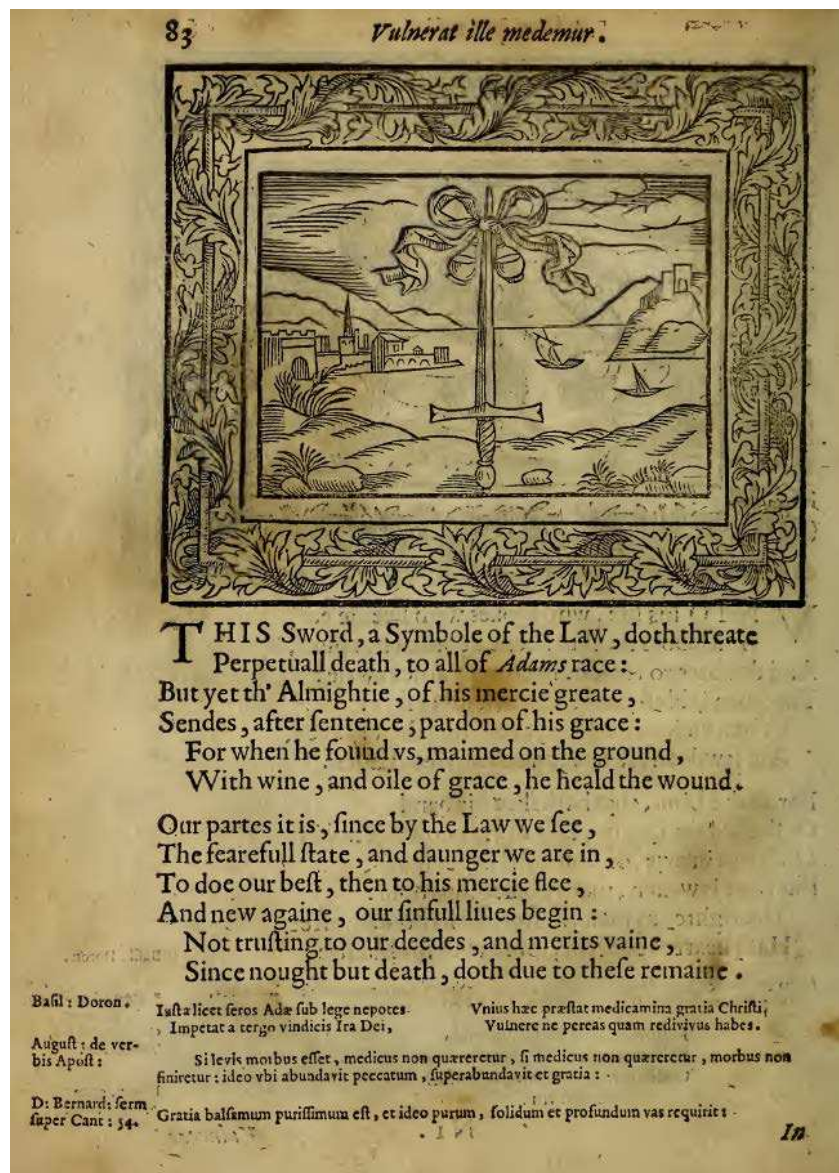 83 Vulnerat ille medemur.
THIS Sword, a Symbole of the Law, doth threate
Perpetuall death, to all of Adams race:
But yet th' Almightie, of his mercie greate,
Sendes, after ſentence, pardon of his grace:
For when he found vs, maimed on the ground,
With wine, and oile of grace, he heald the wound.
Our partes it is, ſince by the Law we ſee,
The fearefull ſtate, and daunger we are in,
To doe our beſt, then to his mercie flee,
And new againe, our ſinfull liues begin:
Not truſting to our deedes, and merits vaine,
Since nought but death, doth due to theſe remaine.
Baſil: Doron.
Iuſta licet ſeros Adæ ſub lege nepotes
Impetat a tergo vindicis Ira Dei,
Vnius hæc præſtat medicamina gratia Chriſti,
Vulnere ne pereas quam redivivus habes.
Auguſt: de ver-
bis Apoſt:
Si levis morbus eſſet, medicus non quæreretur, ſi medicus non quæreretur, morbus non
finiretur: ideo vbi abundavit peccatum, ſuperabundavit et gratia:
D: Bernard: ſerm
ſuper Cant: 54.
Gratia balſamum puriſſimum eſt, et ideo purum, ſolidum et profundum vas requirit:
In